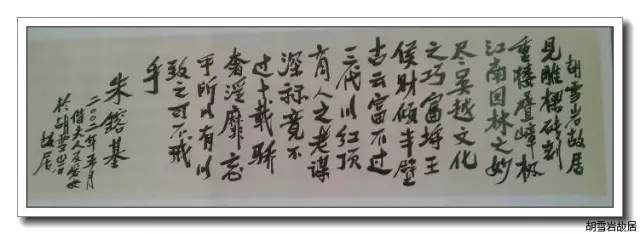 胡雪岩故居
見雕樑砖刻
重楼叠嶂极
江南园林之妙
尽吴越文化
之巧富埒王
侯财倾半壁
古云富不过
三代以红顶
商人之老谋
深算竟不
过十载骄
奢淫靡忘
乎所以有以
致之可不戒
乎
朱镕基
二〇〇二年五月
偕夫人及
於胡雪岩
故居
胡雪岩故居